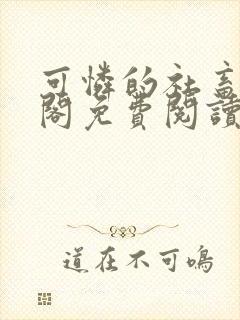 可憐的社畜
閣免費閱讀
道在不可鳴